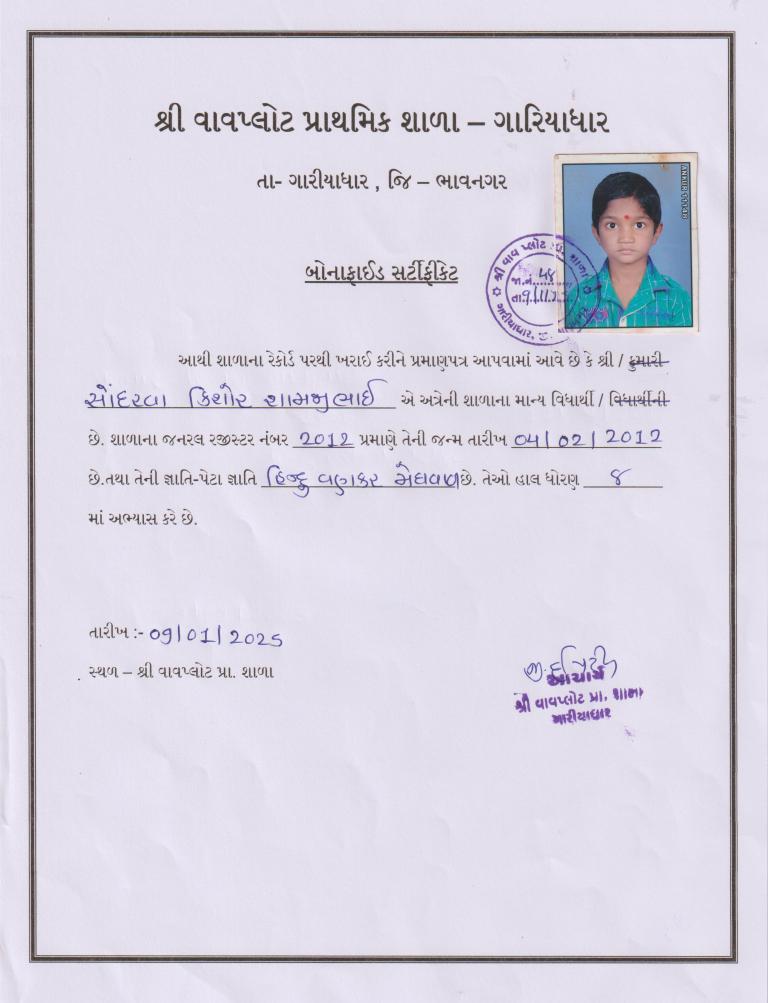 શ્રી વાવપ્લોટ પ્રાથમિક શાળા – ગારિયાધાર
તા- ગારીયાધાર , જિ – ભાવનગર
શ્રી વાવ પ્લોટ પ્રા. શાળા
જા.નં. ૫૪
ગારીયાધાર
બોનાફાઈડ સર્ટીફીકેટ
આથી શાળાના રેકોર્ડ પરથી ખરાઈ કરીને પ્રમાણપત્ર આપવામાં આવે છે કે શ્રી / કુમારી
સોંદરવા કિશોર શામજીભાઈ એ અત્રેની શાળાના માન્ય વિદ્યાર્થી / વિદ્યાર્થીની
છે. શાળાના જનરલ રજીસ્ટર નંબર 2012 પ્રમાણે તેની જન્મ તારીખ 04/02/2012
છે.તથા તેની જ્ઞાતિ-પેટા જ્ઞાતિ હિન્દુ વણકર મેઘવાળ છે. તેઓ હાલ ધોરણ ૪
માં અભ્યાસ કરે છે.
તારીખ :- 09/01/2025
સ્થળ – શ્રી વાવપ્લોટ પ્રા. શાળા
આચાર્ય
શ્રી વાવપ્લોટ પ્રા. શાળા
ગારીયાધાર